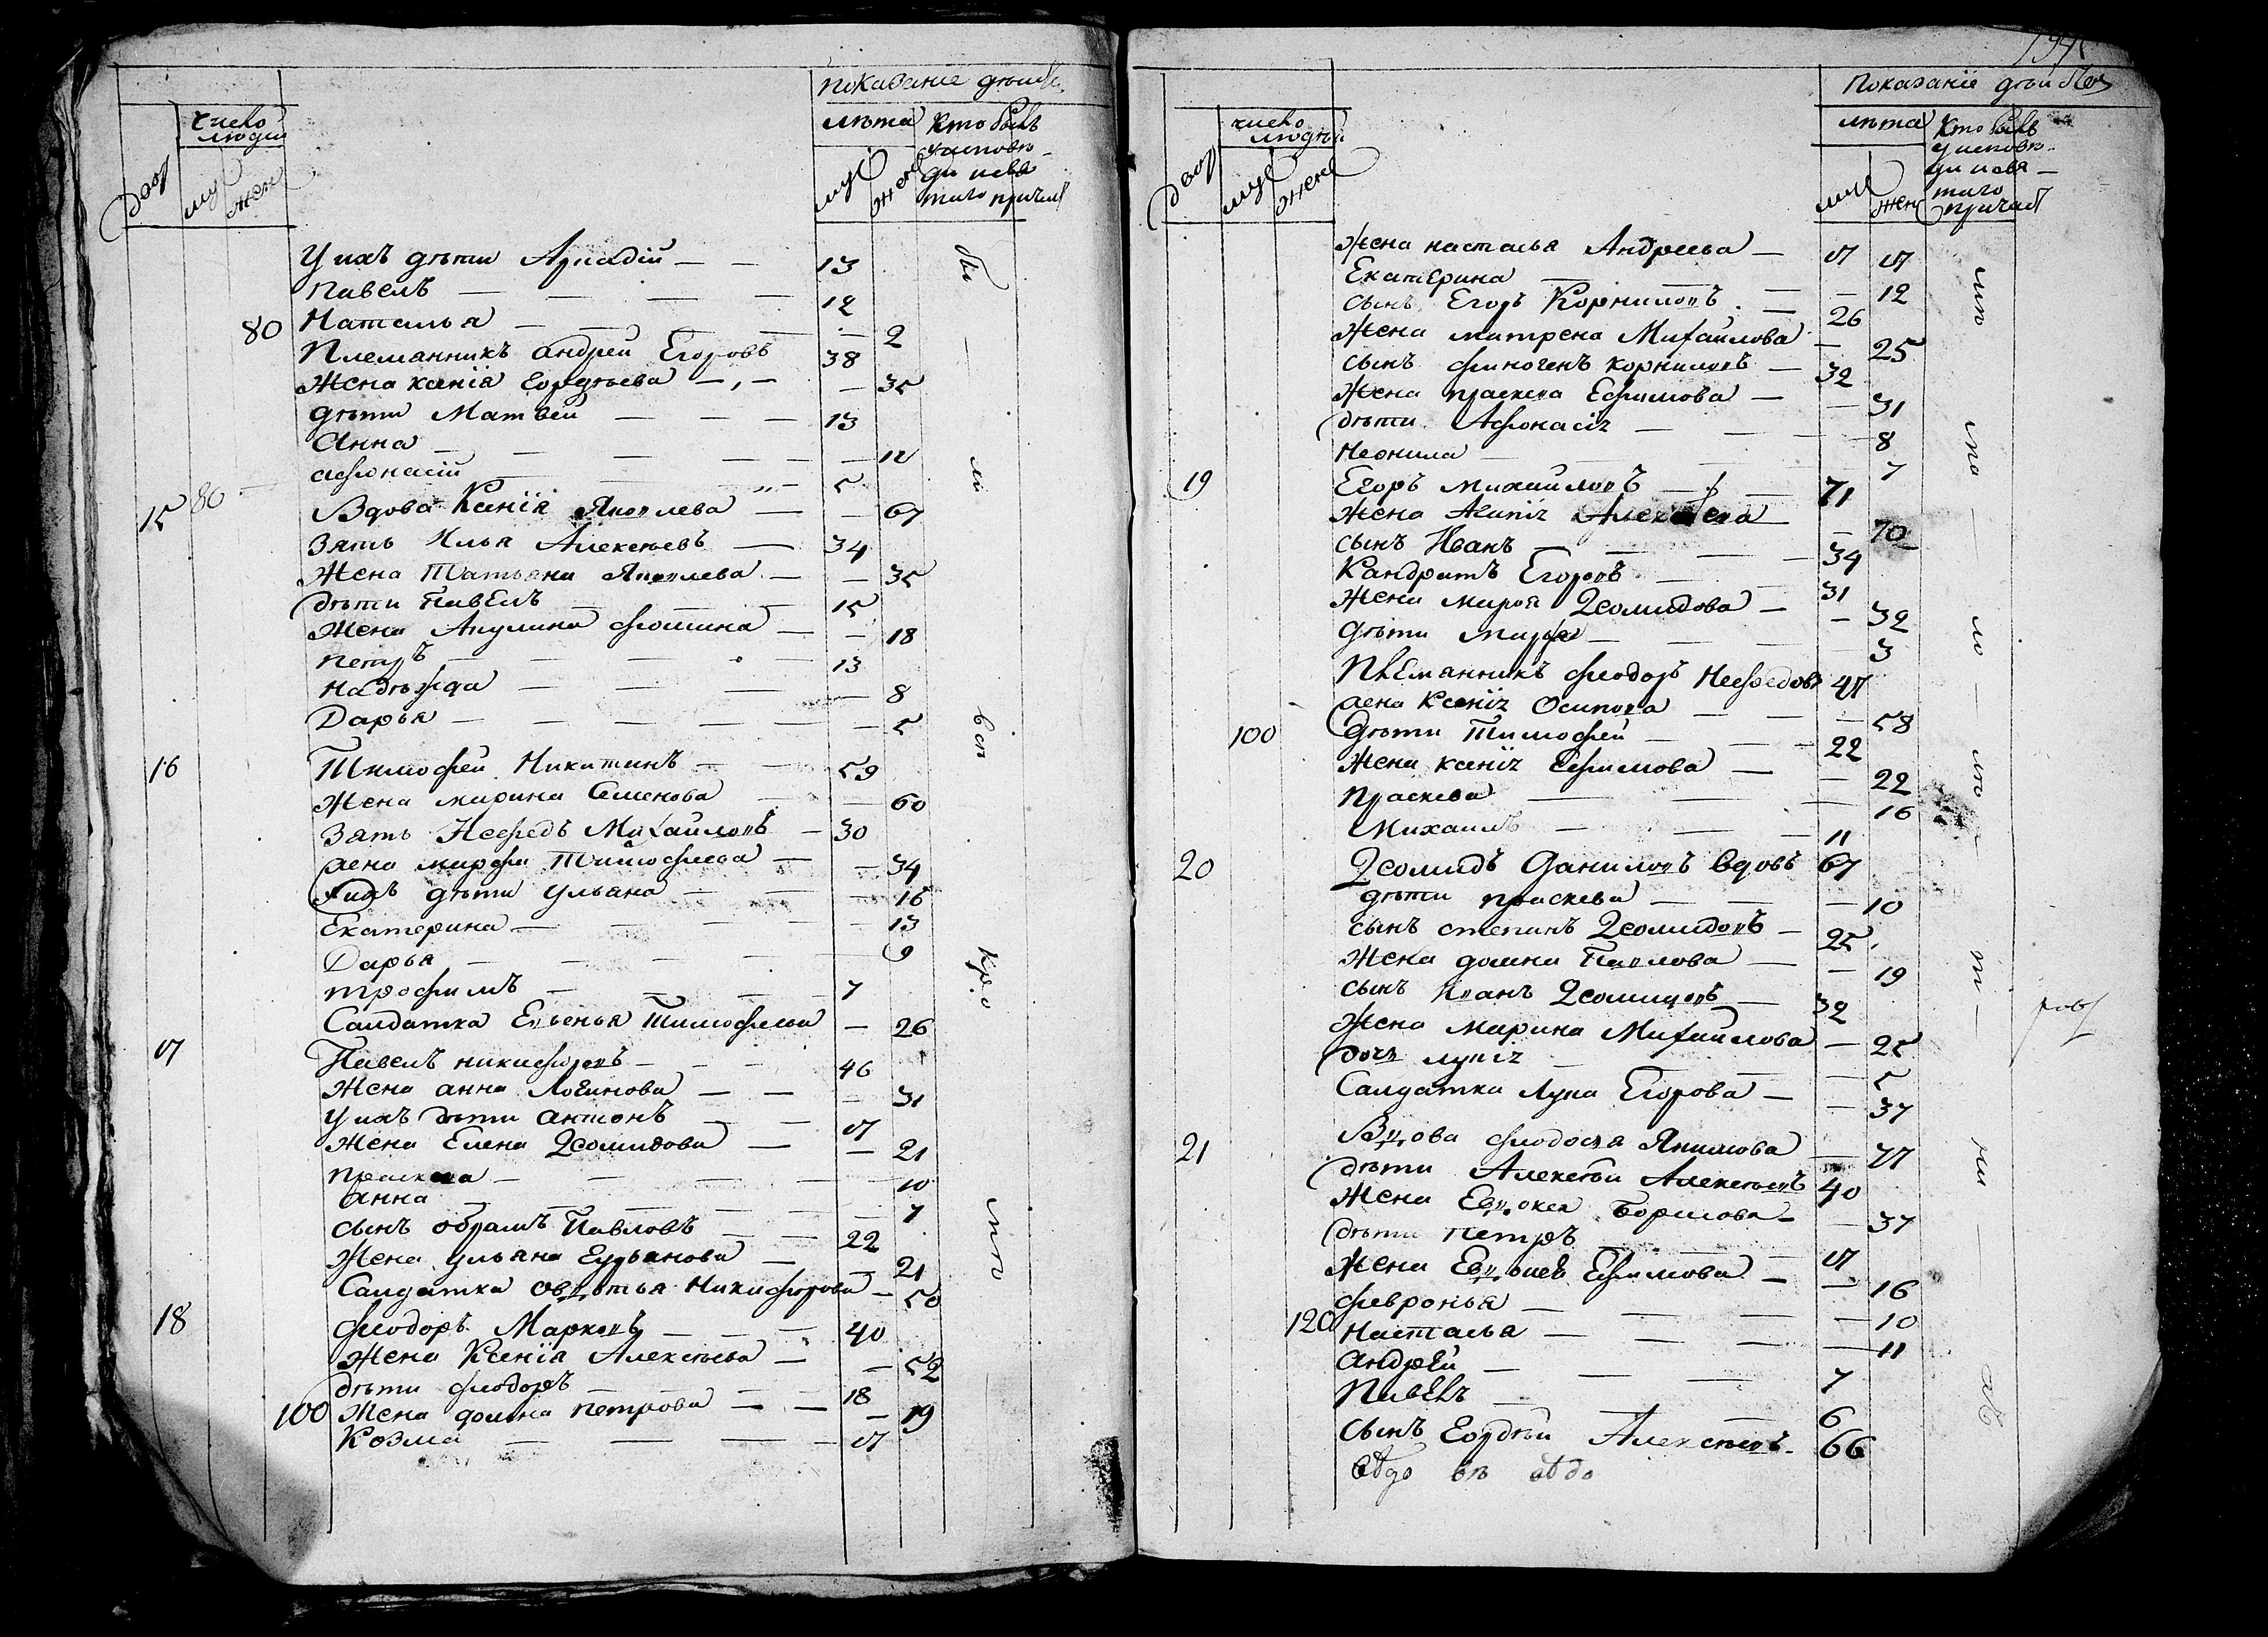 показанїе
число людей
лѣта
Кто былъ у исповѣди и свя таго причаст
двор муж жен
муж жен
У ихъ дѣти Аркадїй — — 13
Павелъ — — — — 12
80 Наталья — — — — 2
Племянникъ андрей Егоровъ 38
Жена ксенїя — — 35
дѣти Матвей — — — 13
Анна — — — — —
афонасїй — 5
15 80 Вдова Ксенїя Яковлева — — 67
Зять Илья Алексѣевъ — 34
Жена Татьяна Яковлева — — 35
дѣти Павелъ — — 15
Жена Акулина фомина — — 18
петръ — — — — 13
надѣжда — — — — 8
Дарья — — — — — 5
16 Тимофей Никитинъ — — 59
Жена марина Семенова — — 60
Зять Нефедъ Михайловъ — 30
жена марфа Тимофеева — — 34
У ихъ дѣти Ульяна — — — 16
Екатерина — — — — 13
Дарья — — — — 9
трофимъ — — — — 7
Салдатка Тимофеева — 26
17 Павелъ никифоровъ — — — 46
Жена анна Логинова — — — 31
У ихъ дѣти антонъ — — 17
Жена Елена Ѳеомидова — — 21
праскева — — — — — 10
анна — — — — — 7
сынъ обрамъ Павловъ — — 22
Жена ульяна — — 21
Салдатка Никифорова — 50
18 Феодоръ Марковъ — — — 40
Жена Ксенїя Алексѣева — — 52
дѣти феодоръ — — — 18
100 Жена домна петрова — — — 19
Козма — — — — 17
бы — ли — всѣ
показанїе
число людѣй
лѣта
Кто былъ у исповѣди и свя таго причаст
двор муж жен
муж жен
Жена настасья Андреева — 17 17
Екатерина — — — 12
сынъ Егоръ Корниловъ — 26
Жена матрена Михайлова — 25
сынъ финогенъ корниловъ — 32
Жена праскева Ефимова — — 31
дѣти Афонасїй — — — 8
Неонила — — — 7
19 Егоръ михайловъ — — 71
Жена — 70
сынъ Иванъ — — — — 34
Кандратъ Егоровъ — — 31
Жена марья Ѳеомидова — — 32
дѣти марфа — — — 3
Племянникъ феодоръ Нефедовъ 47
жена Ксенїя Осипова — — — 58
100 дѣти Тимофей — — — 22
Жена ксенїя Ефимова — — 22
праскева — — — 16
Михаилъ — — — 11
20 Ѳеомидъ Даниловъ вдовъ 67
дѣти праскева — — — 10
сынъ степанъ Ѳеомидовъ — 25
Жена домна Павлова — — 19
сынъ Иванъ Ѳеомидовъ — 32
Жена марина Михайлова — 25
дочь — — — 5
Салдатка Егорова — — 37
21 Вдова феодосья Якимова — 77
дѣти Алексѣй Алексѣевъ 40
Жена Борисова — — 37
дѣти Петръ — — — 17
Жена Ефимова — — 16
февронья — — — — 10
120 Настасья — — — — 11
андрей — — — 7
Павелъ — — — 6
сынъ Алексѣевъ 66